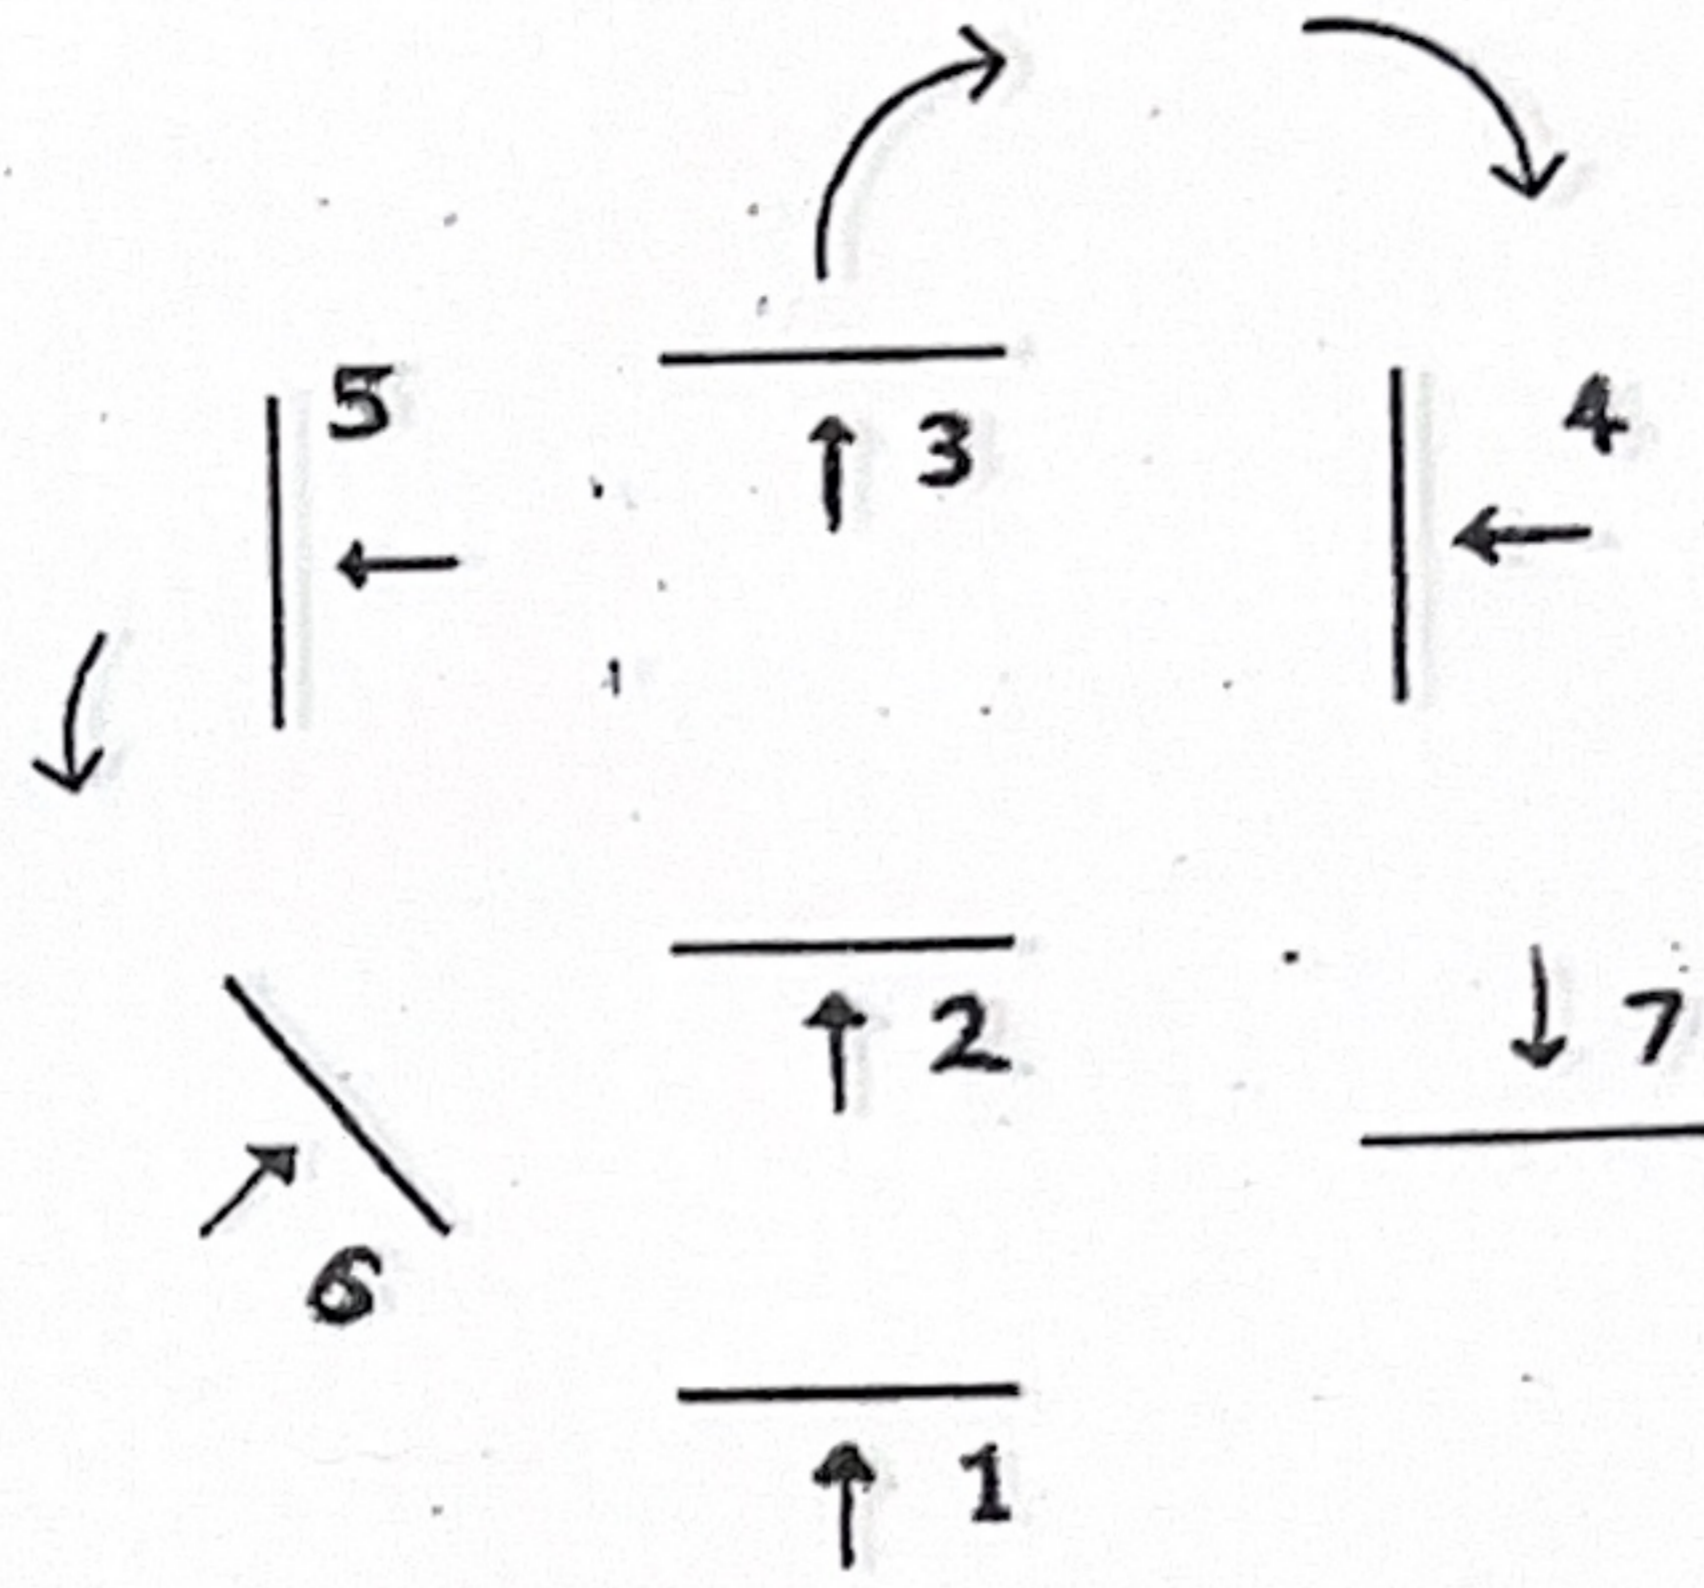 5
3
4
2
7
6
1